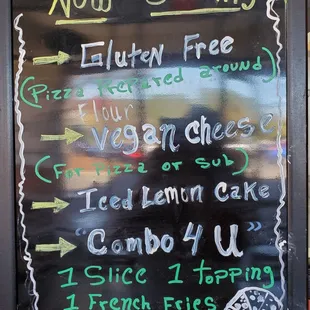 Now
Gluten Free
(Pizza Prepared around)
Flour
Vegan Cheese
(For Pizza or Sub)
Iced Lemon Cake
"Combo 4 U"
1 Slice 1 topping
1 French Fries